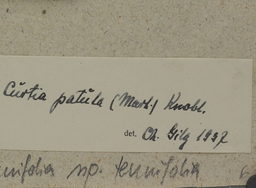 Curtia patula (Mart.) Knobl.
det. Ch. Gilg 1937
nuifolia sp. tenuifolia